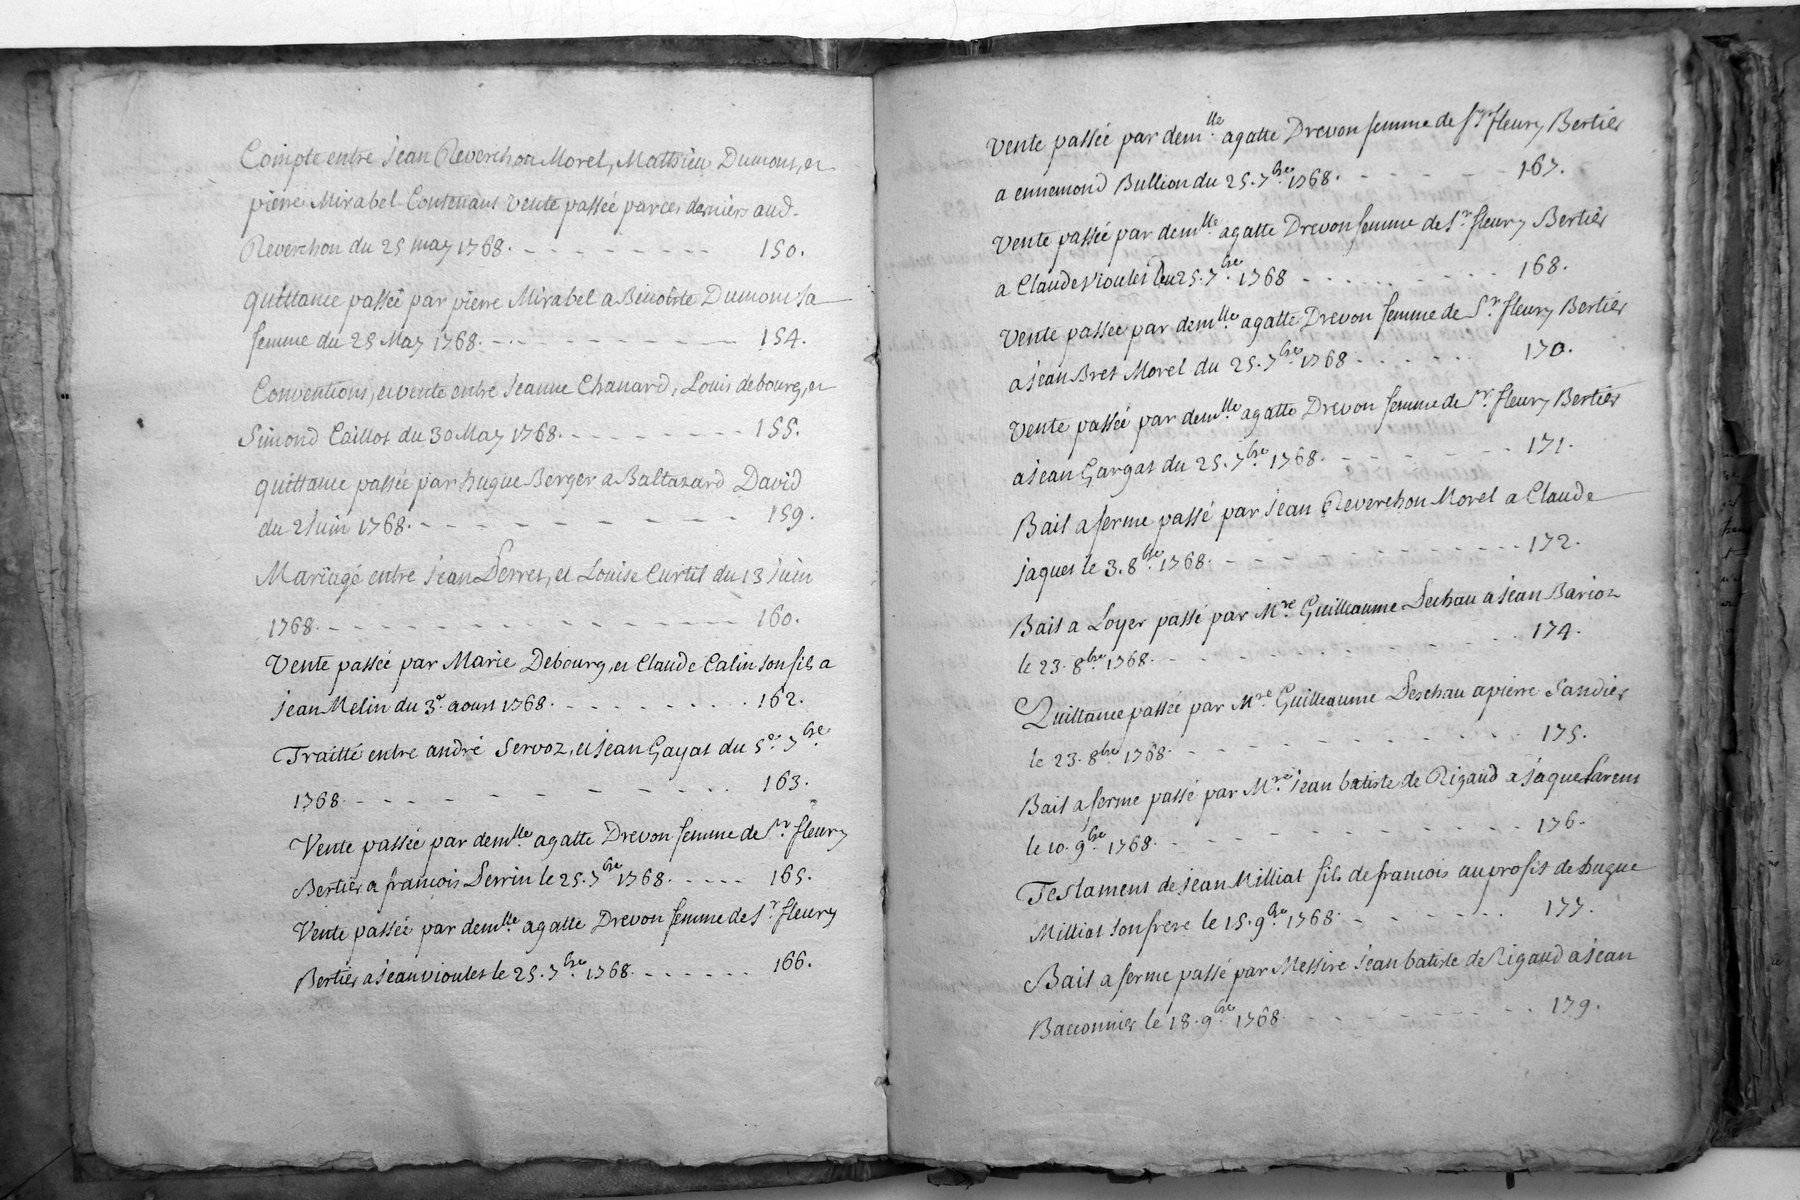 Compte entre Jean Reverchon Morel, Mathieu Dumont, et
pierre Mirabel Contenant vente passée par ces derniers aud.
Reverchon du 25 may 1768. - - - - - - - - 150.
quittance passée par pierre Mirabel a Benoiste Dumont sa
femme du 25 May 1768. - - - - - - - - 154.
Conventions, et vente entre Jeanne Chanard, Louis debourg, et
Simond Caillot du 30 May 1768. - - - - - - - - 155.
quittance passée par hugue Berger a Baltazard David
du 2 Juin 1768. - - - - - - - - 159.
Mariage entre Jean Perret, et Louise Curtil du 13 Juin
1768. - - - - - - - - - - - - 160.
Vente passée par Marie Debourg, et Claude Calin son fils a
Jean Melin du 3e. aoust 1768. - - - - - - - - 162.
Traitté entre andré Servoz, et Jean Gayat du 5e. 7bre.
1768. - - - - - - - - - - 163.
Vente passée par demlle. agatte Drevon femme de Sr. fleury
Bertier a françois Perrin le 25. 7bre. 1768. - - - - 165.
Vente passée par demlle. agatte Drevon femme de Sr. fleury
Bertier a Jean vioulet le 25. 7bre. 1768. - - - - - - 166.
Vente passée par demlle. agatte Drevon femme de Sr. fleury Bertier
a ennemond Bullion du 25. 7bre. 1768. - - - - - - 167.
Vente passée par demlle. agatte Drevon femme de Sr. fleury Bertier
a Claude vioulet du 25. 7bre. 1768 - - - - - - 168.
Vente passée par demlle. agatte Drevon femme de Sr. fleury Bertier
a Jean Bret Morel du 25. 7bre. 1768 - - - - - - 170.
Vente passée par demlle. agatte Drevon femme de Sr. fleury Bertier
a Jean Gargat du 25. 7bre. 1768. - - - - - - - 171.
Bail a ferme passé par Jean Reverchon Morel a Claude
Jaquet le 3. 8bre. 1768. - - - - - - - - - 172.
Bail a Loyer passé par Mre. Guilleaume Dechau a Jean Barioz
le 23. 8bre. 1768. - - - - - - - - - 174.
Quittance passée par Mre. Guilleaume Deschau a pierre Sandier
le 23. 8bre. 1768. - - - - - - - - - 175.
Bail a ferme passé par Mre. Jean batiste de Rigaud a Jaque
le 10. 9bre. 1768. - - - - - - - - - 176.
Testament de Jean Milliat fils de francois au profit de hugue
Milliat son frere le 15. 9bre. 1768. - - - - - - - 177.
Bail a ferme passé par Messire Jean batiste de Rigaud a Jean
Bacconnier le 18. 9bre. 1768. - - - - - - - - 179.